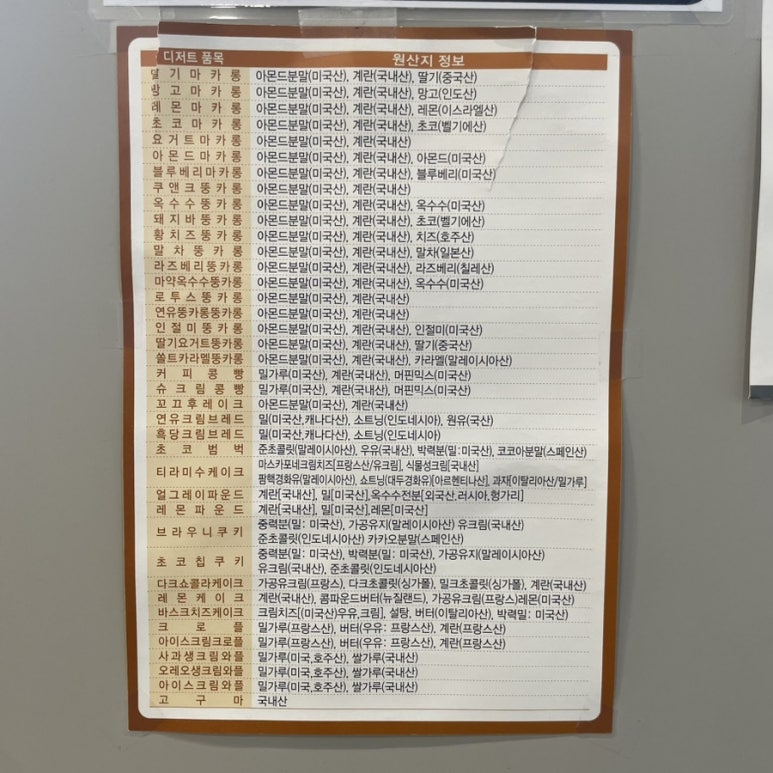 디저트 품목 원산지 정보
딸기마카롱 아몬드분말(미국산), 계란(국내산), 딸기(중국산)
망고마카롱 아몬드분말(미국산), 계란(국내산), 망고(인도산)
레몬마카롱 아몬드분말(미국산), 계란(국내산), 레몬(이스라엘산)
초코마카롱 아몬드분말(미국산), 계란(국내산), 초코(벨기에산)
요거트마카롱 아몬드분말(미국산), 계란(국내산)
아몬드마카롱 아몬드분말(미국산), 계란(국내산), 아몬드(미국산)
블루베리마카롱 아몬드분말(미국산), 계란(국내산), 블루베리(미국산)
쿠앤크뚱카롱 아몬드분말(미국산), 계란(국내산)
옥수수뚱카롱 아몬드분말(미국산), 계란(국내산), 옥수수(미국산)
돼지바뚱카롱 아몬드분말(미국산), 계란(국내산), 초코(벨기에산)
황치즈뚱카롱 아몬드분말(미국산), 계란(국내산), 치즈(호주산)
말차뚱카롱 아몬드분말(미국산), 계란(국내산), 말차(일본산)
라즈베리뚱카롱 아몬드분말(미국산), 계란(국내산), 라즈베리(칠레산)
마약옥수수뚱카롱 아몬드분말(미국산), 계란(국내산), 옥수수(미국산)
로투스뚱카롱 아몬드분말(미국산), 계란(국내산)
연유뚱카롱뚱카롱 아몬드분말(미국산), 계란(국내산)
인절미뚱카롱 아몬드분말(미국산), 계란(국내산), 인절미(미국산)
딸기요거트뚱카롱 아몬드분말(미국산), 계란(국내산), 딸기(중국산)
쏠트카라멜뚱카롱 아몬드분말(미국산), 계란(국내산), 카라멜(말레이시아산)
커피콩빵 밀가루(미국산), 계란(국내산), 머핀믹스(미국산)
슈크림콩빵 밀가루(미국산), 계란(국내산), 머핀믹스(미국산)
꼬끄후레이크 아몬드분말(미국산), 계란(국내산)
연유크림브레드 밀(미국산,캐나다산), 쇼트닝(인도네시아), 원유(국산)
흑당크림브레드 밀(미국산,캐나다산), 쇼트닝(인도네시아)
초코범벅 준초콜릿(말레이시아산), 우유(국내산), 박력분(밀:미국산), 코코아분말(스페인산)
티라미수케이크 마스카포네크림치즈[프랑스산/유크림], 식물성크림[국내산]
팜핵경화유(말레이시아산), 쇼트닝(대두경화유)[아르헨티나산], 과자[이탈리아산/밀가루]
얼그레이파운드 계란[국내산], 밀[미국산],옥수수전분[외국산,러시아,헝가리]
레몬파운드 계란[국내산], 밀[미국산],레몬[미국산]
브라우니쿠키 중력분(밀: 미국산), 가공유지(말레이시아산) 유크림(국내산)
준초콜릿(인도네시아산) 카카오분말(스페인산)
초코칩쿠키 중력분(밀: 미국산), 박력분(밀: 미국산), 가공유지(말레이시아산)
유크림(국내산), 준초콜릿(인도네시아산)
다크쇼콜라케이크 가공유크림(프랑스), 다크초콜릿(싱가폴), 밀크초콜릿(싱가폴), 계란(국내산)
레몬케이크 계란(국내산), 콤파운드버터(뉴질랜드), 가공유크림(프랑스)레몬(미국산)
바스크치즈케이크 크림치즈[(미국산)우유,크림], 설탕, 버터(이탈리아산), 박력밀: 미국산)
크로플 밀가루(프랑스산), 버터(우유: 프랑스산), 계란(프랑스산)
아이스크림크로플 밀가루(프랑스산), 버터(우유: 프랑스산), 계란(프랑스산)
사과생크림와플 밀가루(미국,호주산), 쌀가루(국내산)
오레오생크림와플 밀가루(미국,호주산), 쌀가루(국내산)
아이스크림와플 밀가루(미국,호주산), 쌀가루(국내산)
고구마 국내산